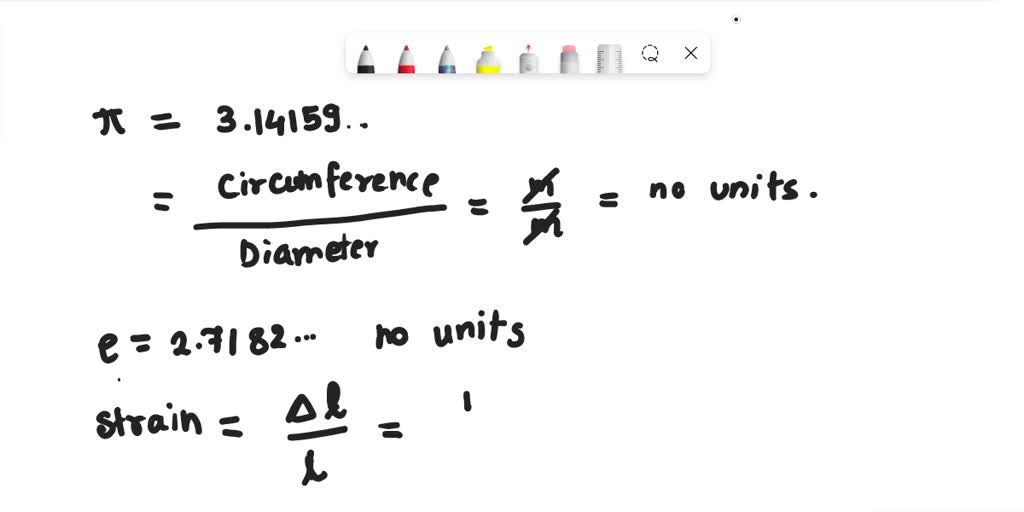 π = 3.14159..
= Circumference / Diameter = m / m = no units.
e = 2.7182... no units
strain = Δl / l =